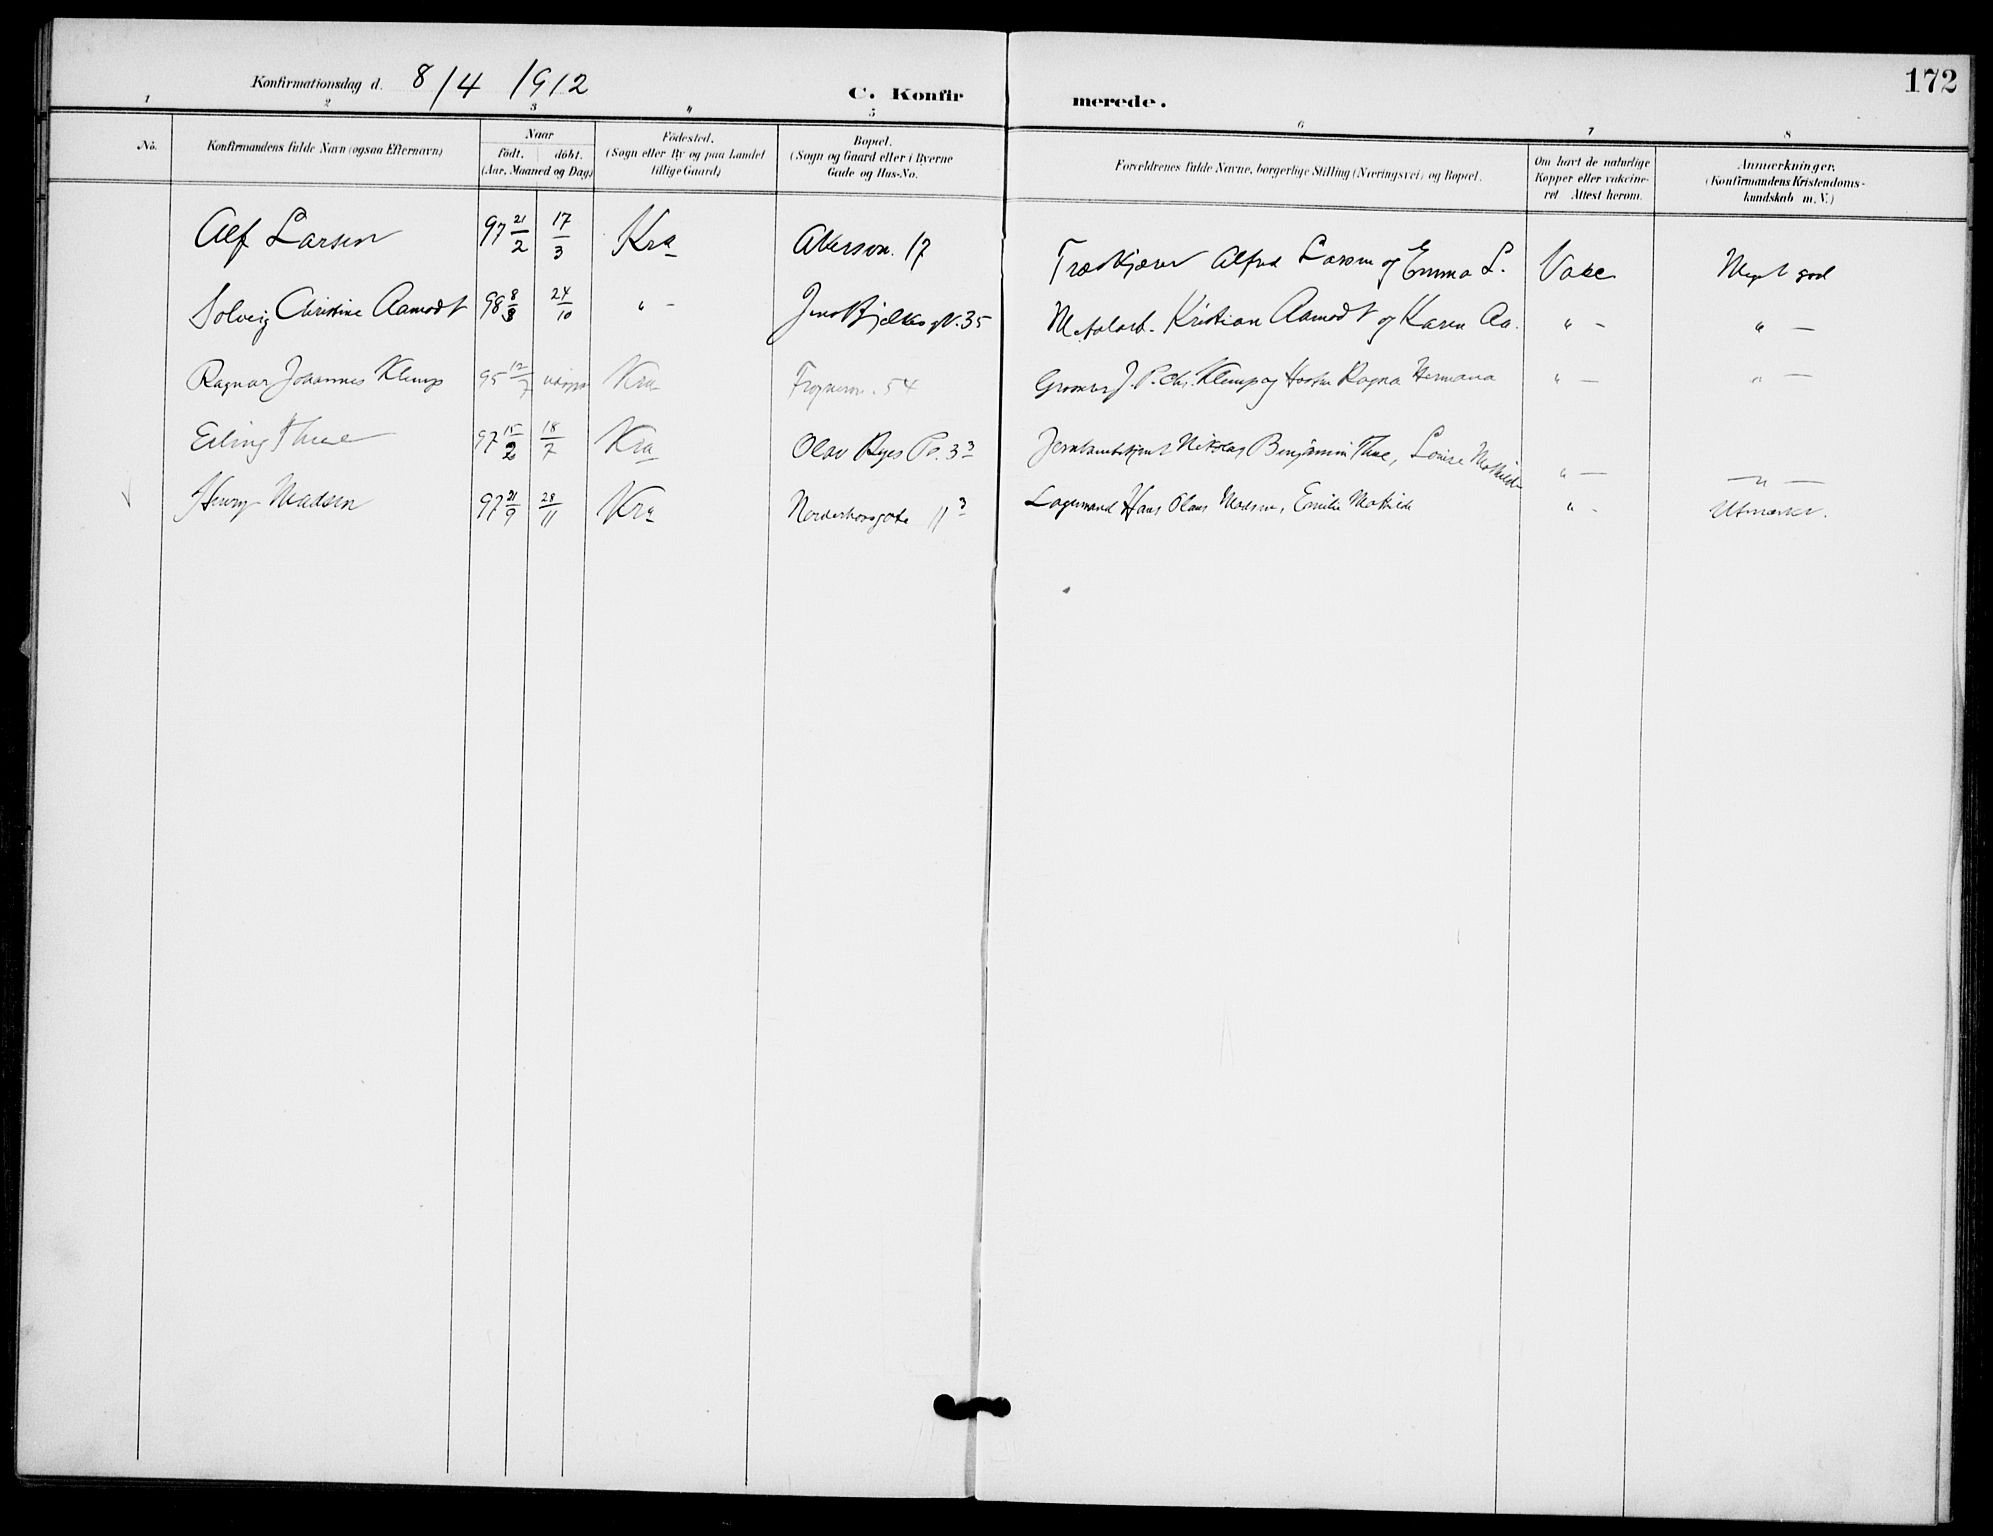 172
Konfirmationsdag d. 8/4 1912
C. Konfir merede.
1 2 3 " 5 6 7 8
No.
Konfirmandens fulde Navn (ogsaa Efternavn)
Naar
födt. döbt.
(Aar, Maaned og Dag)
Födested.
(Sogn eller By og paa Landet
tillige Gaard)
Bopæl.
(Sogn og Gaard eller i Byerne
Gade og Hus-No.
Forældrenes fulde Navne, borgerlige Stilling (Næringsvei) og Bopæl.
Om havt de naturlige
Kopper eller vakcine-
ret Attest herom.
Anmærkninger.
(Konfirmandens Kristendoms-
kundskab m. V.)
Alf Larsen 97 21/2 17/3 Kra Akersvn. 17 Træskjærer Alfred Larsen og Emma L. Vacc Meget god
Solveig Christine Aamodt 98 8/8 24/10 " - Jens Bjelkes gt. 35 Metalarb. Kristian Aamodt og Karen Aa. " - " -
Ragnar Johannes Klemp 95 12/7 Kra Frognervn. 54 Grosserer J. P. Chr. Klemp og Hustru Ragna Hermana " - " -
Erling Thue 97 15/2 18/7 Kra Olav Ryes Pl. 3 3 Nikolay Benjamin Thue, Louise Mathilde " - - " -
Henry Madsen 97 21/9 28/11 Kra Norderhovsgate 11 3 Lagermand Hans Olaus Madsen, Emilie Mathilde " - Utmerket.